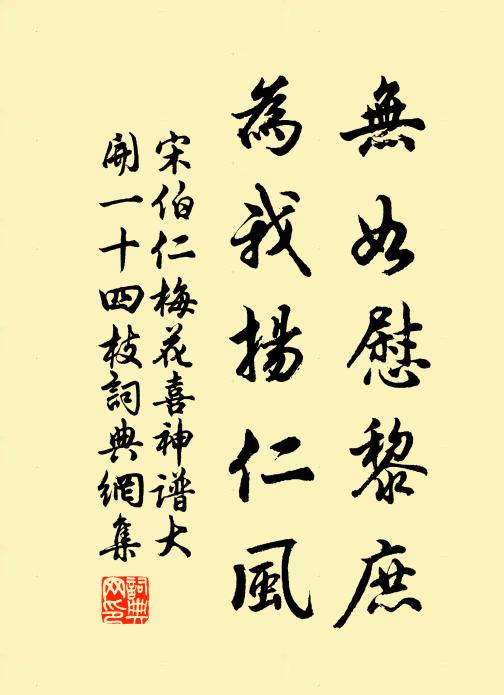 無以慰黎庶
為我揚仁風
宋伯仁梅花喜神谱大
開一十四枝詞典網集
詞典
网印